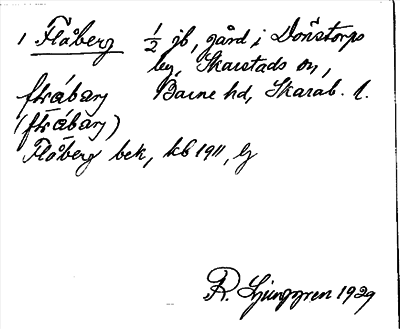 1 Flåberg 1/2 jb, gård i Dönstorps
by, Skarstads sn,
Barne hd, Skarab. l.
flåbärj
(flåbärj)
Flåberg bek, kb 1911, lj
R. Ljunggren 1929